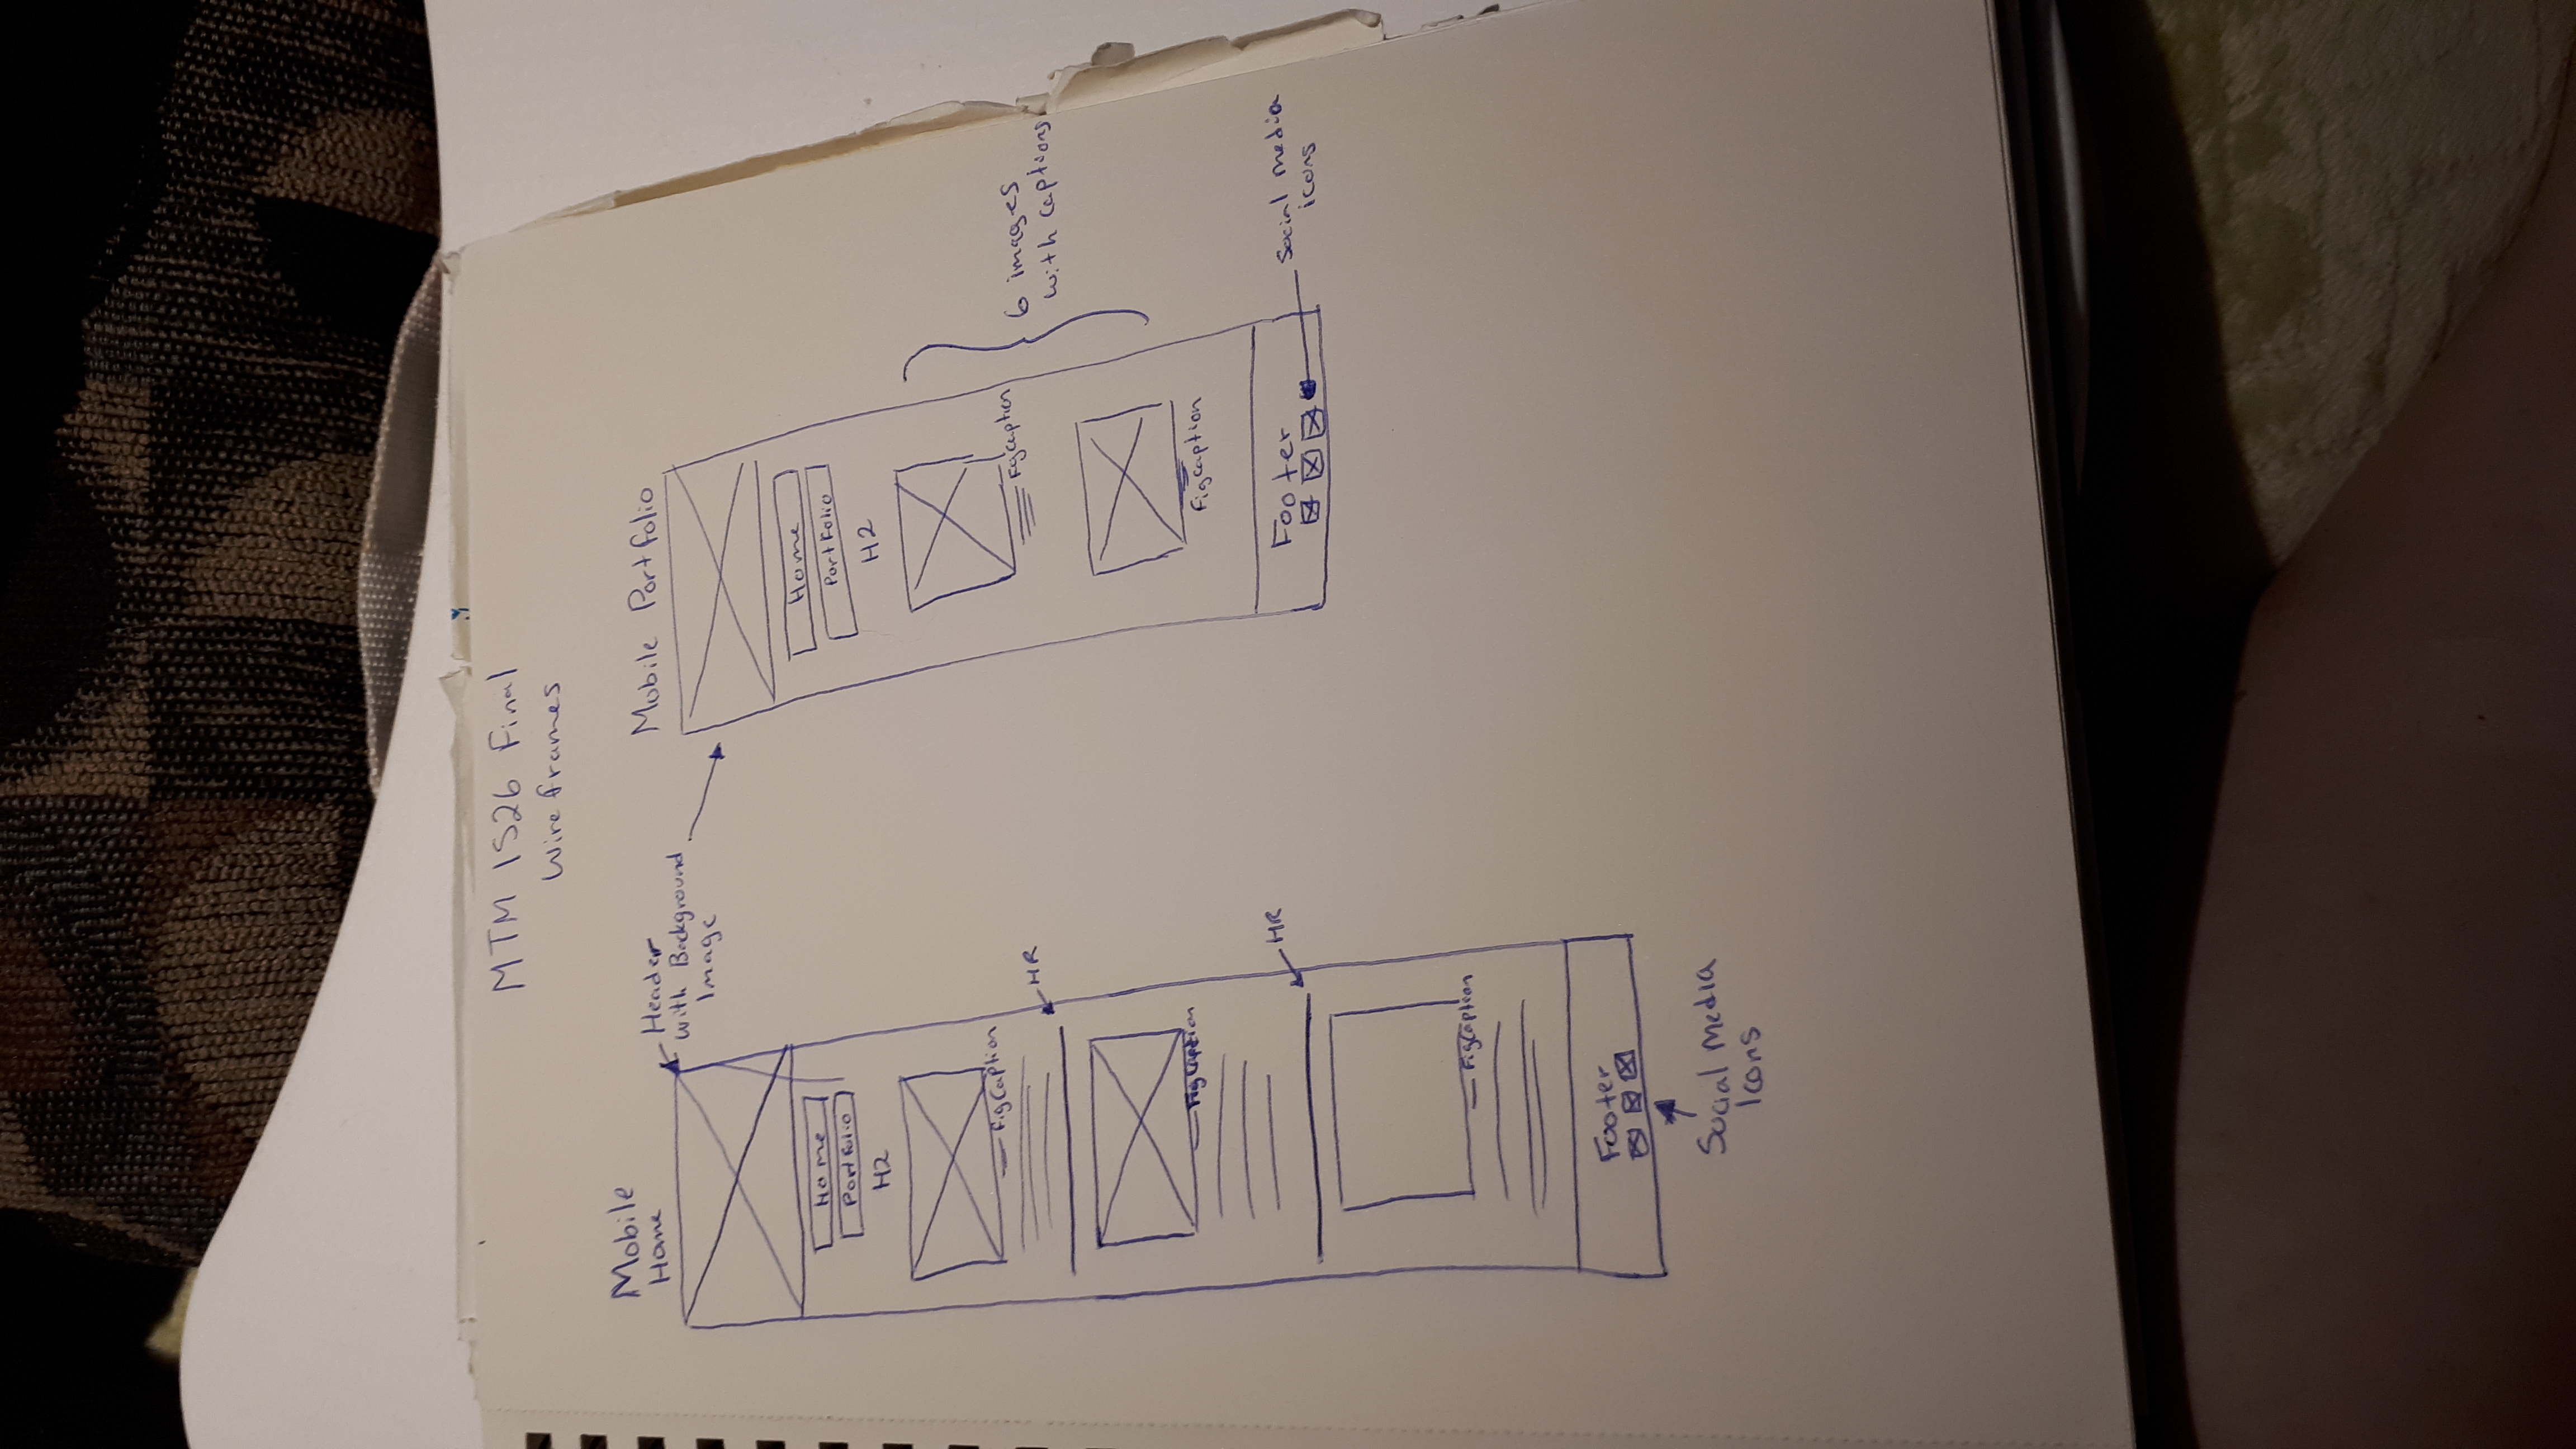 MTM 1526 Final
Wireframes
Mobile
Home
Header
with Background
Image
Home
Portfolio
H2
Figcaption
HR
Figcaption
HR
Figcaption
Footer
Social Media
Icons
Mobile Portfolio
Home
Portfolio
H2
Figcaption
6 images
with captions
Figcaption
Footer
Social media
icons